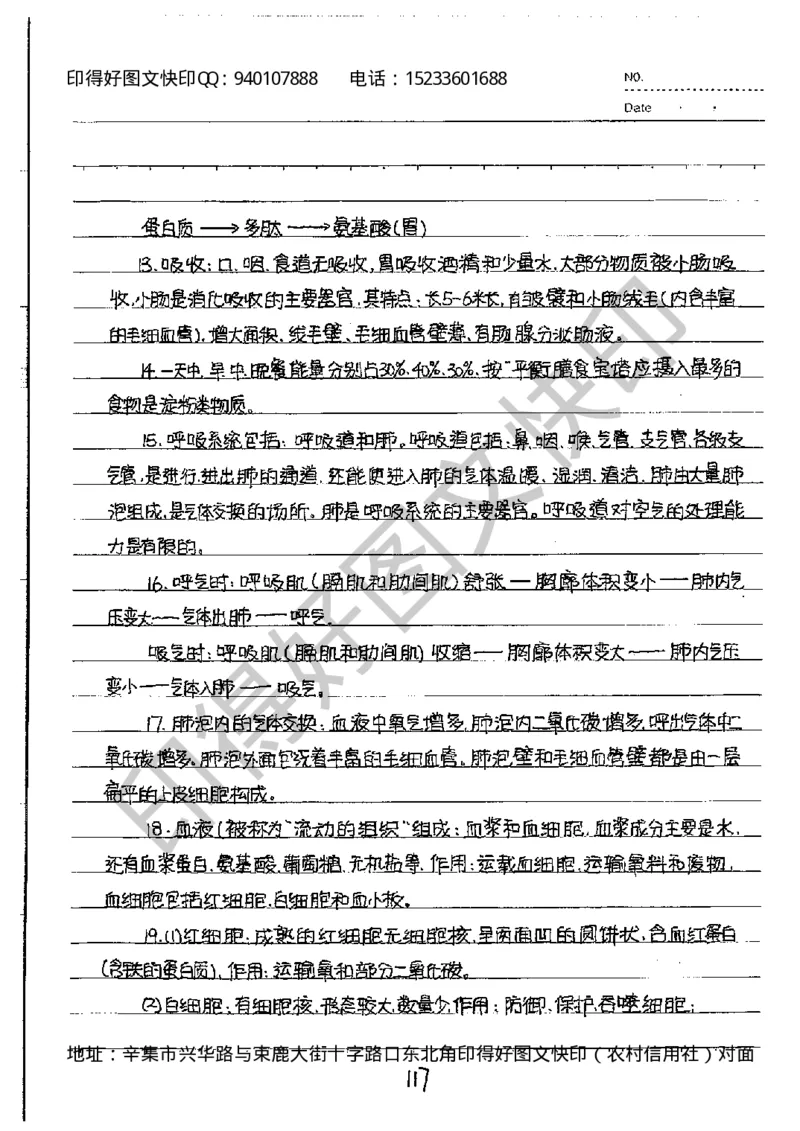 印得好图文快印QQ：940107888 电话：15233601688
NO.
Date
蛋白质→多肽→氨基酸(胃)
13.吸收：口、咽、食道无吸收,胃吸收酒精和少量水,大部分物质被小肠吸
收,小肠是消化吸收的主要器官,其特点：长5-6米长,有皱襞和小肠绒毛(内含丰富
的毛细血管),增大面积,绒毛壁、毛细血管壁薄,有肠腺分泌肠液。
14.一天中,早、中、晚餐能量分别占30%、40%、30%、按“平衡膳食宝塔应摄入最多的
食物是淀粉类物质。
15.呼吸系统包括：呼吸道和肺。呼吸道包括:鼻、咽、喉、气管、支气管、各级支
气管,是进行进出肺的通道,还能使进入肺的气体温暖、湿润、清洁.肺由大量肺
泡组成,是气体交换的场所。肺是呼吸系统的主要器官。呼吸道对空气的处理能
力是有限的。
16.呼气时：呼吸肌(膈肌和肋间肌)舒张—胸廓体积变小—肺内气
压变大—气体出肺—呼气.
吸气时：呼吸肌(膈肌和肋间肌)收缩—胸廓体积变大—肺内气压
变小—气体入肺—吸气。
17.肺泡内的气体交换：血液中氧气增多,肺泡内二氧化碳增多,呼出气体中二
氧化碳增多。肺泡外面包绕着丰富的毛细血管。肺泡壁和毛细血管壁都是由一层
扁平的上皮细胞构成。
18.血液(被称为“流动的组织”组成：血浆和血细胞,血浆成分主要是水,
还有血浆蛋白、氨基酸、葡萄糖、无机盐等.作用：运载血细胞,运输氧料和废物,
血细胞包括红细胞、白细胞和血小板。
19.(1)红细胞：成熟的红细胞无细胞核,呈两面凹的圆饼状,含血红蛋白
(含铁的蛋白质),作用：运输氧和部分二氧化碳。
(2)白细胞：有细胞核,形态较大,数量少,作用：防御、保护、吞噬细胞；
地址：辛集市兴华路与束鹿大街十字路口东北角印得好图文快印（农村信用社）对面
117
印得好图文快印